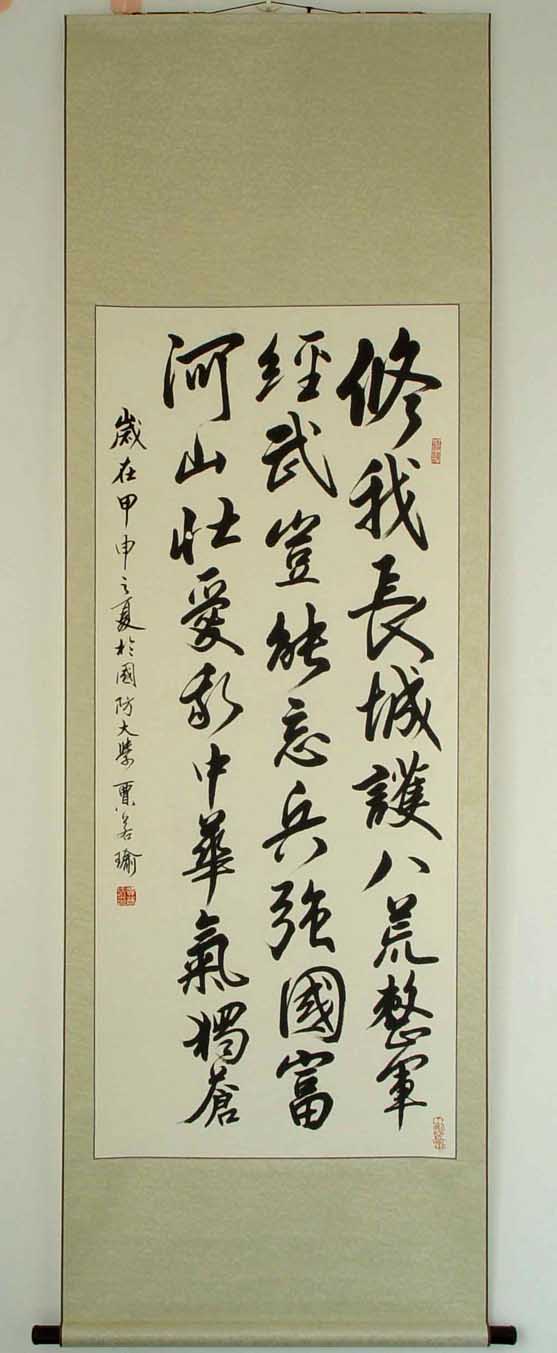 修我長城護八荒整軍
經武豈能忘兵強國富
河山壯愛我中華氣獨蒼
歲在甲申之夏於國防大學賈若瑜